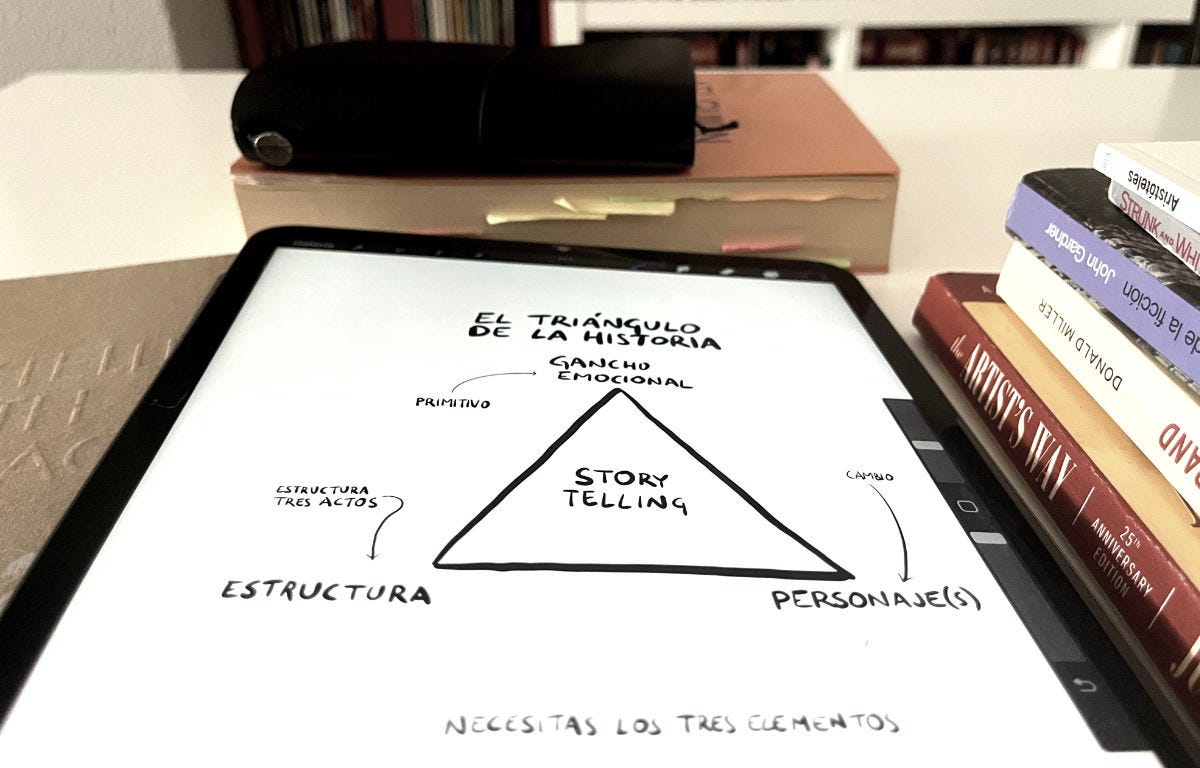 EL TRIÁNGULO
DE LA HISTORIA
GANCHO
EMOCIONAL
PRIMITIVO
STORY
TELLING
ESTRUCTURA
TRES ACTOS
CAMBIO
ESTRUCTURA
PERSONAJE(S)
NECESITAS LOS TRES ELEMENTOS
Aristóteles
STRUNK AND WHI
John Gardner
de la ficción
DONALD MILLER
RAND
the ARTIST'S WAY
25th
ANNIVERSARY
EDITION